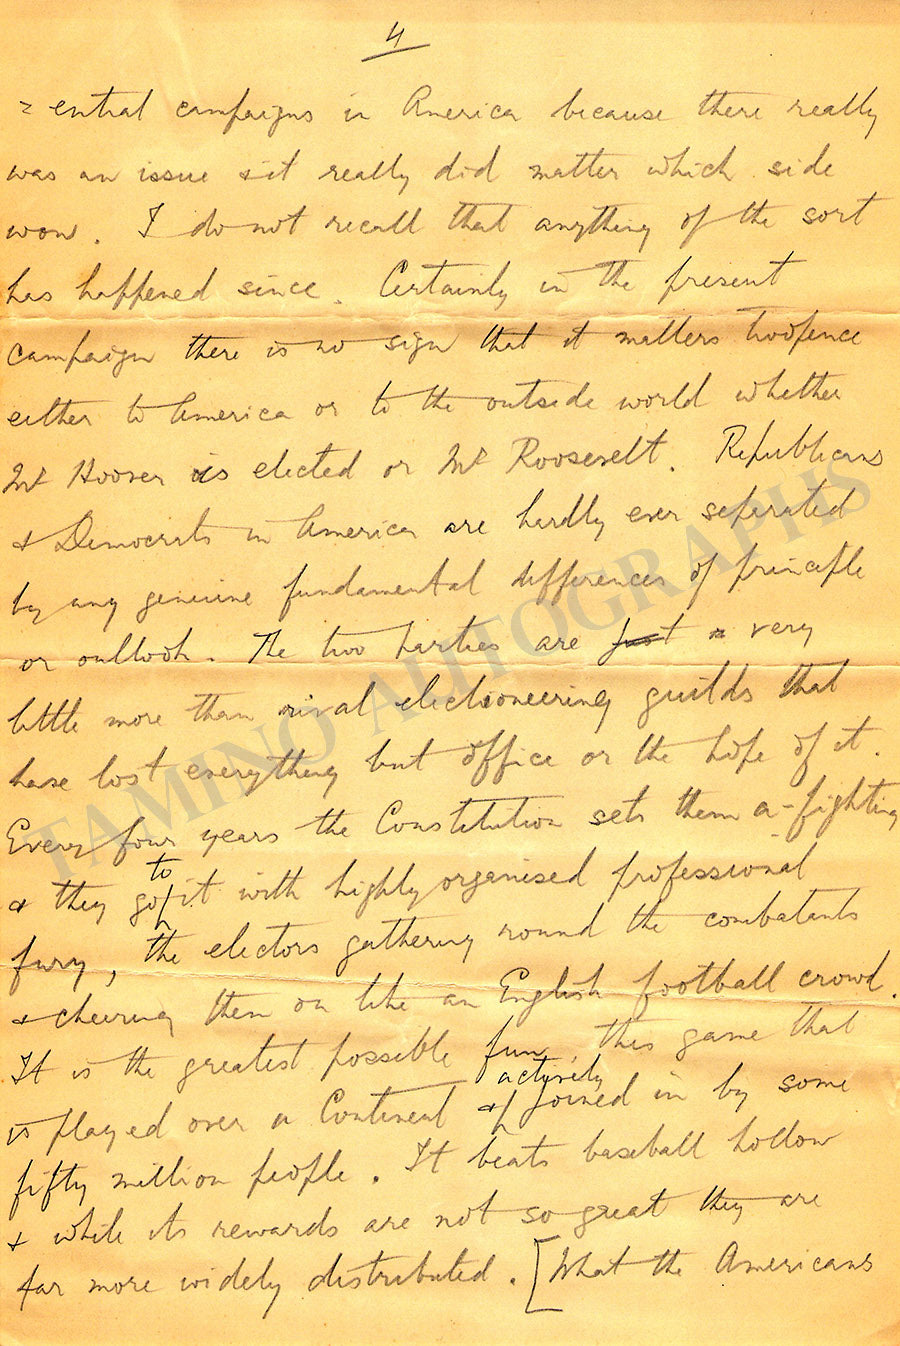 4
=ential campaigns in America because there really
was an issue & it really did matter which side
won. I do not recall that anything of the sort
has happened since. Certainly in the present
campaign there is no sign that it matters twopence
either to America or to the outside world whether
Mr Hoover is elected or Mr Roosevelt. Republicans
& Democrats in America are hardly ever seperated
by any genuine fundamental differences of principle
or outlook. The two parties are very
little more than rival electioneering guilds that
have lost everything but office or the hope of it.
Every four years the Constitution sets them a-fighting
to
& they go it with highly organised professional
fury, the electors gathering round the combatants
& cheering them on like an English football crowd.
It is the greatest possible fun, this game that
actively
is played over a Continent & joined in by some
fifty million people. It beats baseball hollow
& while its rewards are not so great they are
far more widely distributed. [What the Americans
TAMINO AUTOGRAPHS